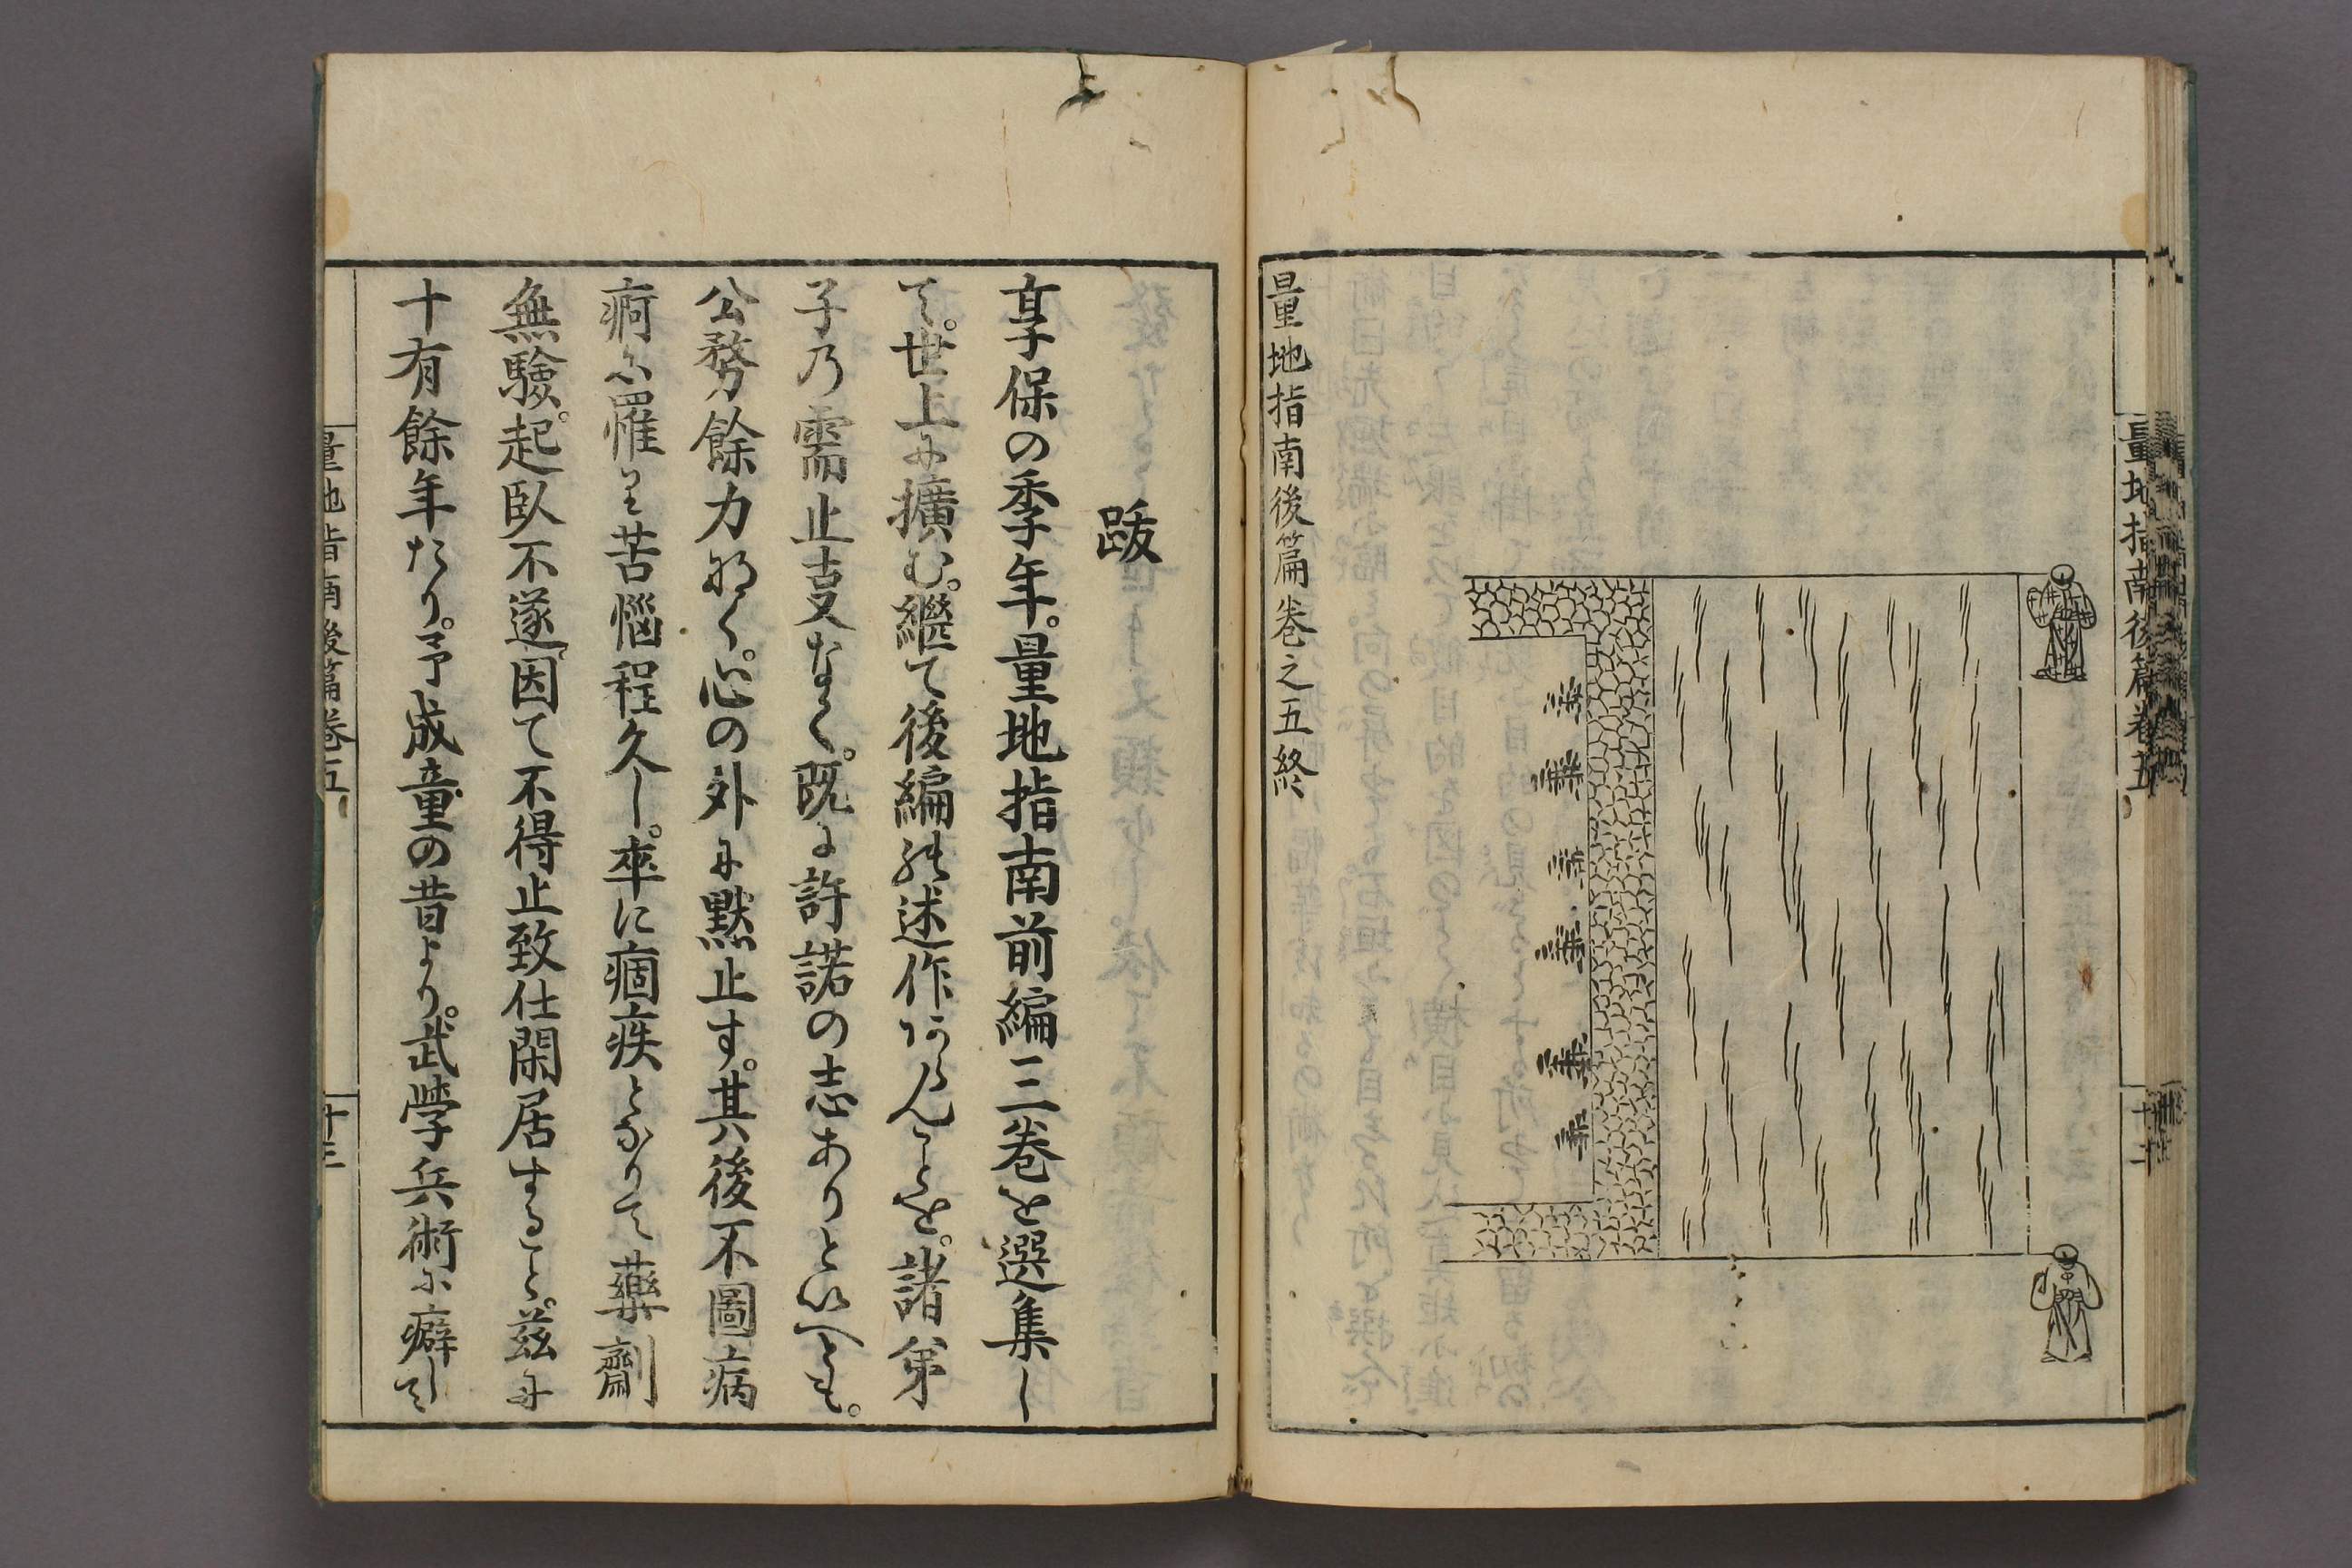 量地指南後篇卷五
十二
量地指南後篇卷之五終
跋
享保の季年。量地指南前編三卷を選集し
て。世上に擴む。繼て後編の述作あらんことを。諸弟
子乃需止事なく。既に許諾の志ありといへども。
公務余餘力なく。心の外に默止す。其後不圖病
痾に罹り苦惱程久し。卒に痼疾となりて藥劑
無驗。起臥不遂。因て不得止致仕閑居すること。茲に
十有餘年たり。予成童の昔より。武學兵術に癖して
量地指南後篇卷五
十三